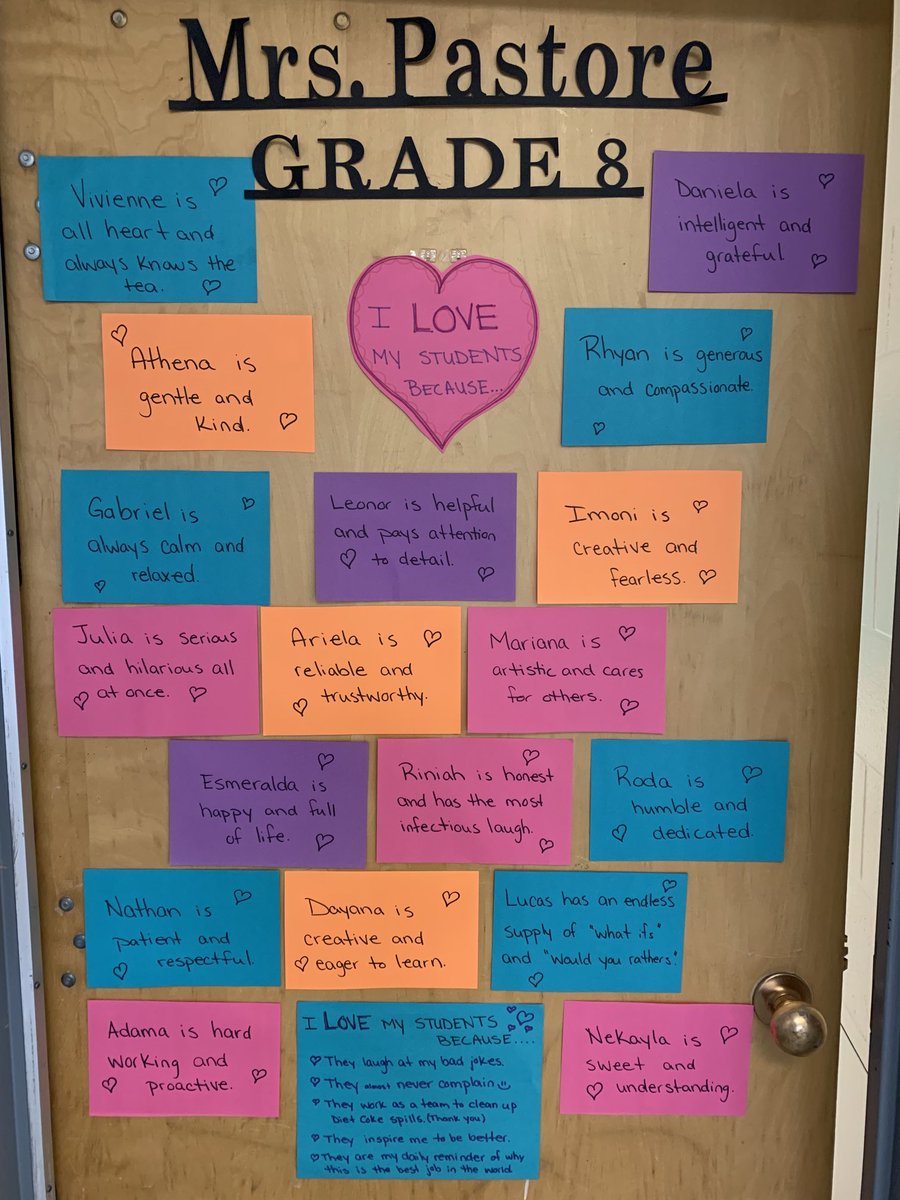 Mrs. Pastore
GRADE 8
Vivienne is
all heart and
always knows the
tea.
Daniela is
intelligent and
grateful
I LOVE
MY STUDENTS
BECAUSE...
Athena is
gentle and
kind.
Rhyan is generous
and compassionate.
Gabriel is
always calm and
relaxed.
Leonor is helpful
and pays attention
to detail.
Imoni is
creative and
fearless.
Julia is serious
and hilarious all
at once.
Ariela is
reliable and
trustworthy.
Mariana is
artistic and cares
for others.
Esmeralda is
happy and full
of life.
Riniah is honest
and has the most
infectious laugh.
Roda is
humble and
dedicated.
Nathan is
patient and
respectful.
Dayana is
creative and
eager to learn.
Lucas has an endless
supply of "what ifs"
and "would you rathers".
Adama is hard
working and
proactive.
I LOVE MY STUDENTS
BECAUSE....
They laugh at my bad jokes.
They almost never complain
They work as a team to clean up
Diet Coke spills. (Thank you)
They inspire me to be better.
They are my daily reminder of why
this is the best job in the world
Nekayla is
sweet and
understanding.